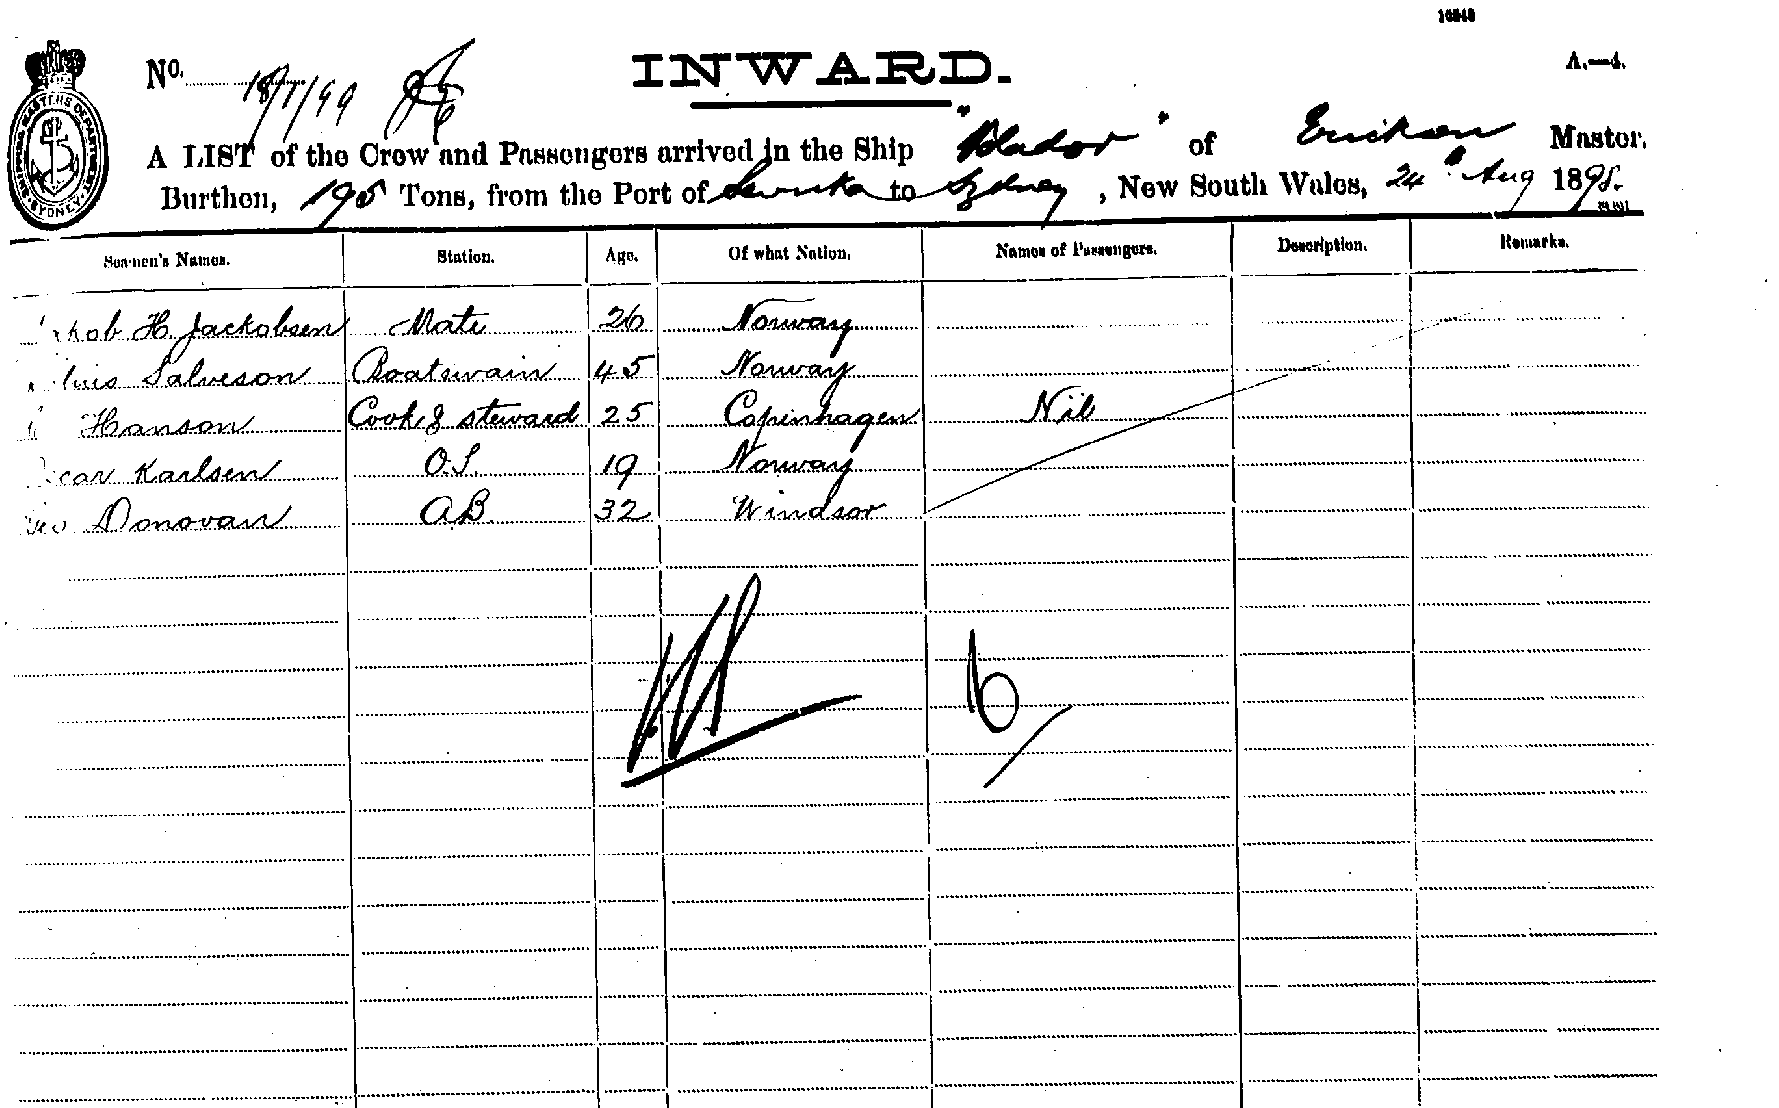 INWARD.
A.—4.
No. 18/1/99
A LIST of the Crew and Passengers arrived in the Ship " " of Erickson Master,
Burthen, 195 Tons, from the Port of Levuka to Sydney, New South Wales, 24th Aug 1898.
Seamen's Names. Station. Age. Of what Nation. Names of Passengers. Description. Remarks.
kob H. Jackobsen Mate 26 Norway
Salveson Boatswain 45 Norway
Hanson Cook & Steward 25 Copenhagen Nil
car Karlsen O.S. 19 Norway
Donovan AB 32 Windsor
6
SHIPPING MASTERS DEPARTMENT SYDNEY